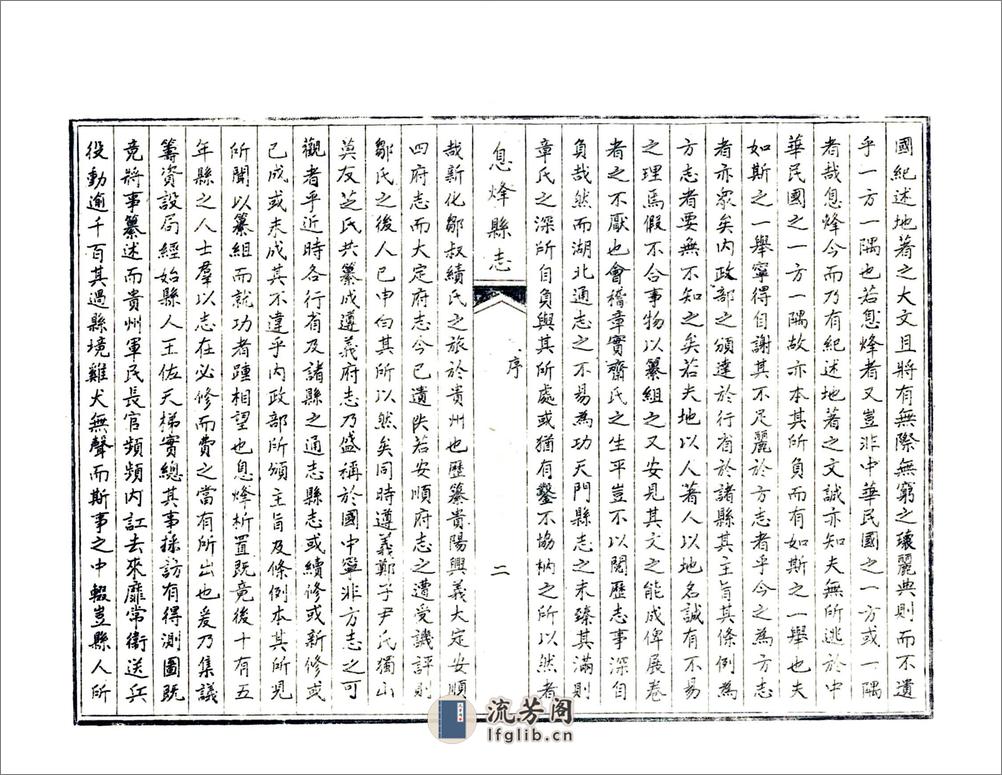 國紀述地著之大文且將有無際無窮之瓌麗典則而不遺
乎一方一隅也若息烽者又豈非中華民國之一方或一隅
者哉息烽今而乃有紀述地著之文誠亦知夫無所逃於中
華民國之一方一隅故亦本其所負而有如斯之一舉也夫
如斯之一舉寧得自謝其不尺麗於方志者乎今之為方志
者亦眾矣內政部之頒達於行省於諸縣其主旨其條例為
方志者要無不知之矣若夫地以人著人以地名誠有不易
之理焉假不合事物以纂組之又安見其文之能成俾展卷
者之不厭也會稽章實齋氏之生平豈不以閱歷志事深自
負哉然而湖北通志之不易為功天門縣志之未臻其滿則
章氏之深所自負與其所處或猶有鑿不協枘之所以然者
息烽縣志
序
二
哉新化鄒叔績氏之旅於貴州也歷纂貴陽興義大定安順
四府志而大定府志今已遺失若安順府志之遭受譏評則
鄒氏之後人已申白其所以然矣同時遵義鄭子尹氏獨山
莫友芝氏共纂成遵義府志乃盛稱於國中寧非方志之可
觀者乎近時各行省及諸縣之通志縣志或續修或新修或
已成或未成其不違乎內政部所頒主旨及條例本其所見
所聞以纂組而就功者踵相望也息烽析置既竟後十有五
年縣之人士羣以志在必修而費之當有所出也爰乃集議
籌資設局經始縣人王佐天梯實總其事採訪有得測圖既
竟將事纂述而貴州軍民長官頻頻內訌去來靡常衝送兵
役動逾千百其過縣境雞犬無聲而斯事之中輟豈縣人所
流芳阁
lfglib.cn